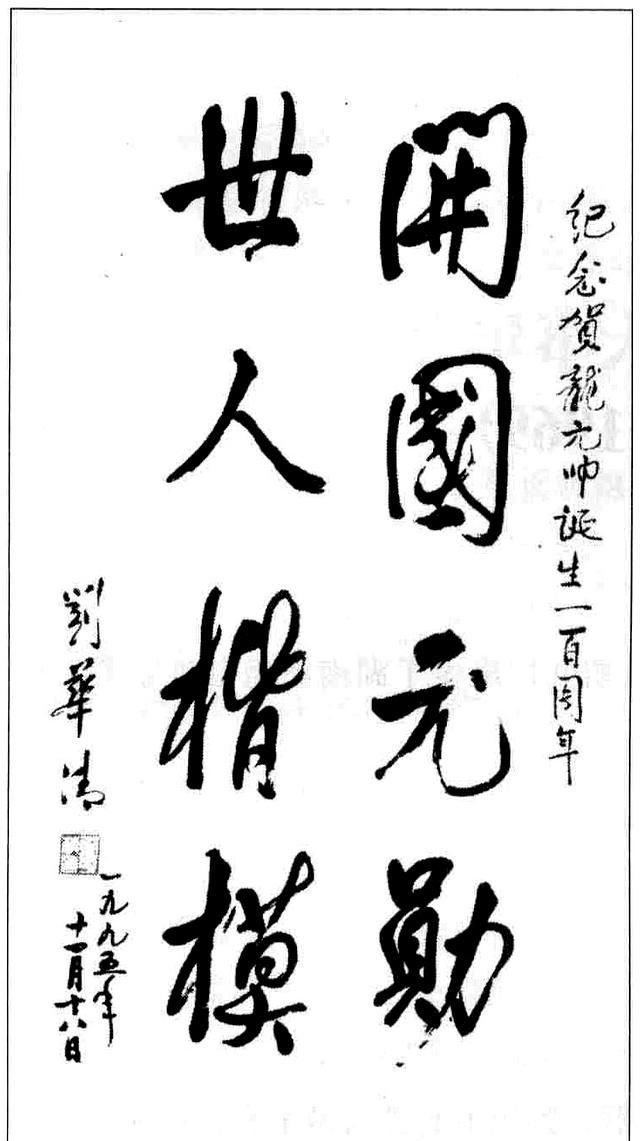 紀念賀龍元帅誕生一百周年
開國元勛
世人楷模
劉華清
一九九五年
十一月十八日